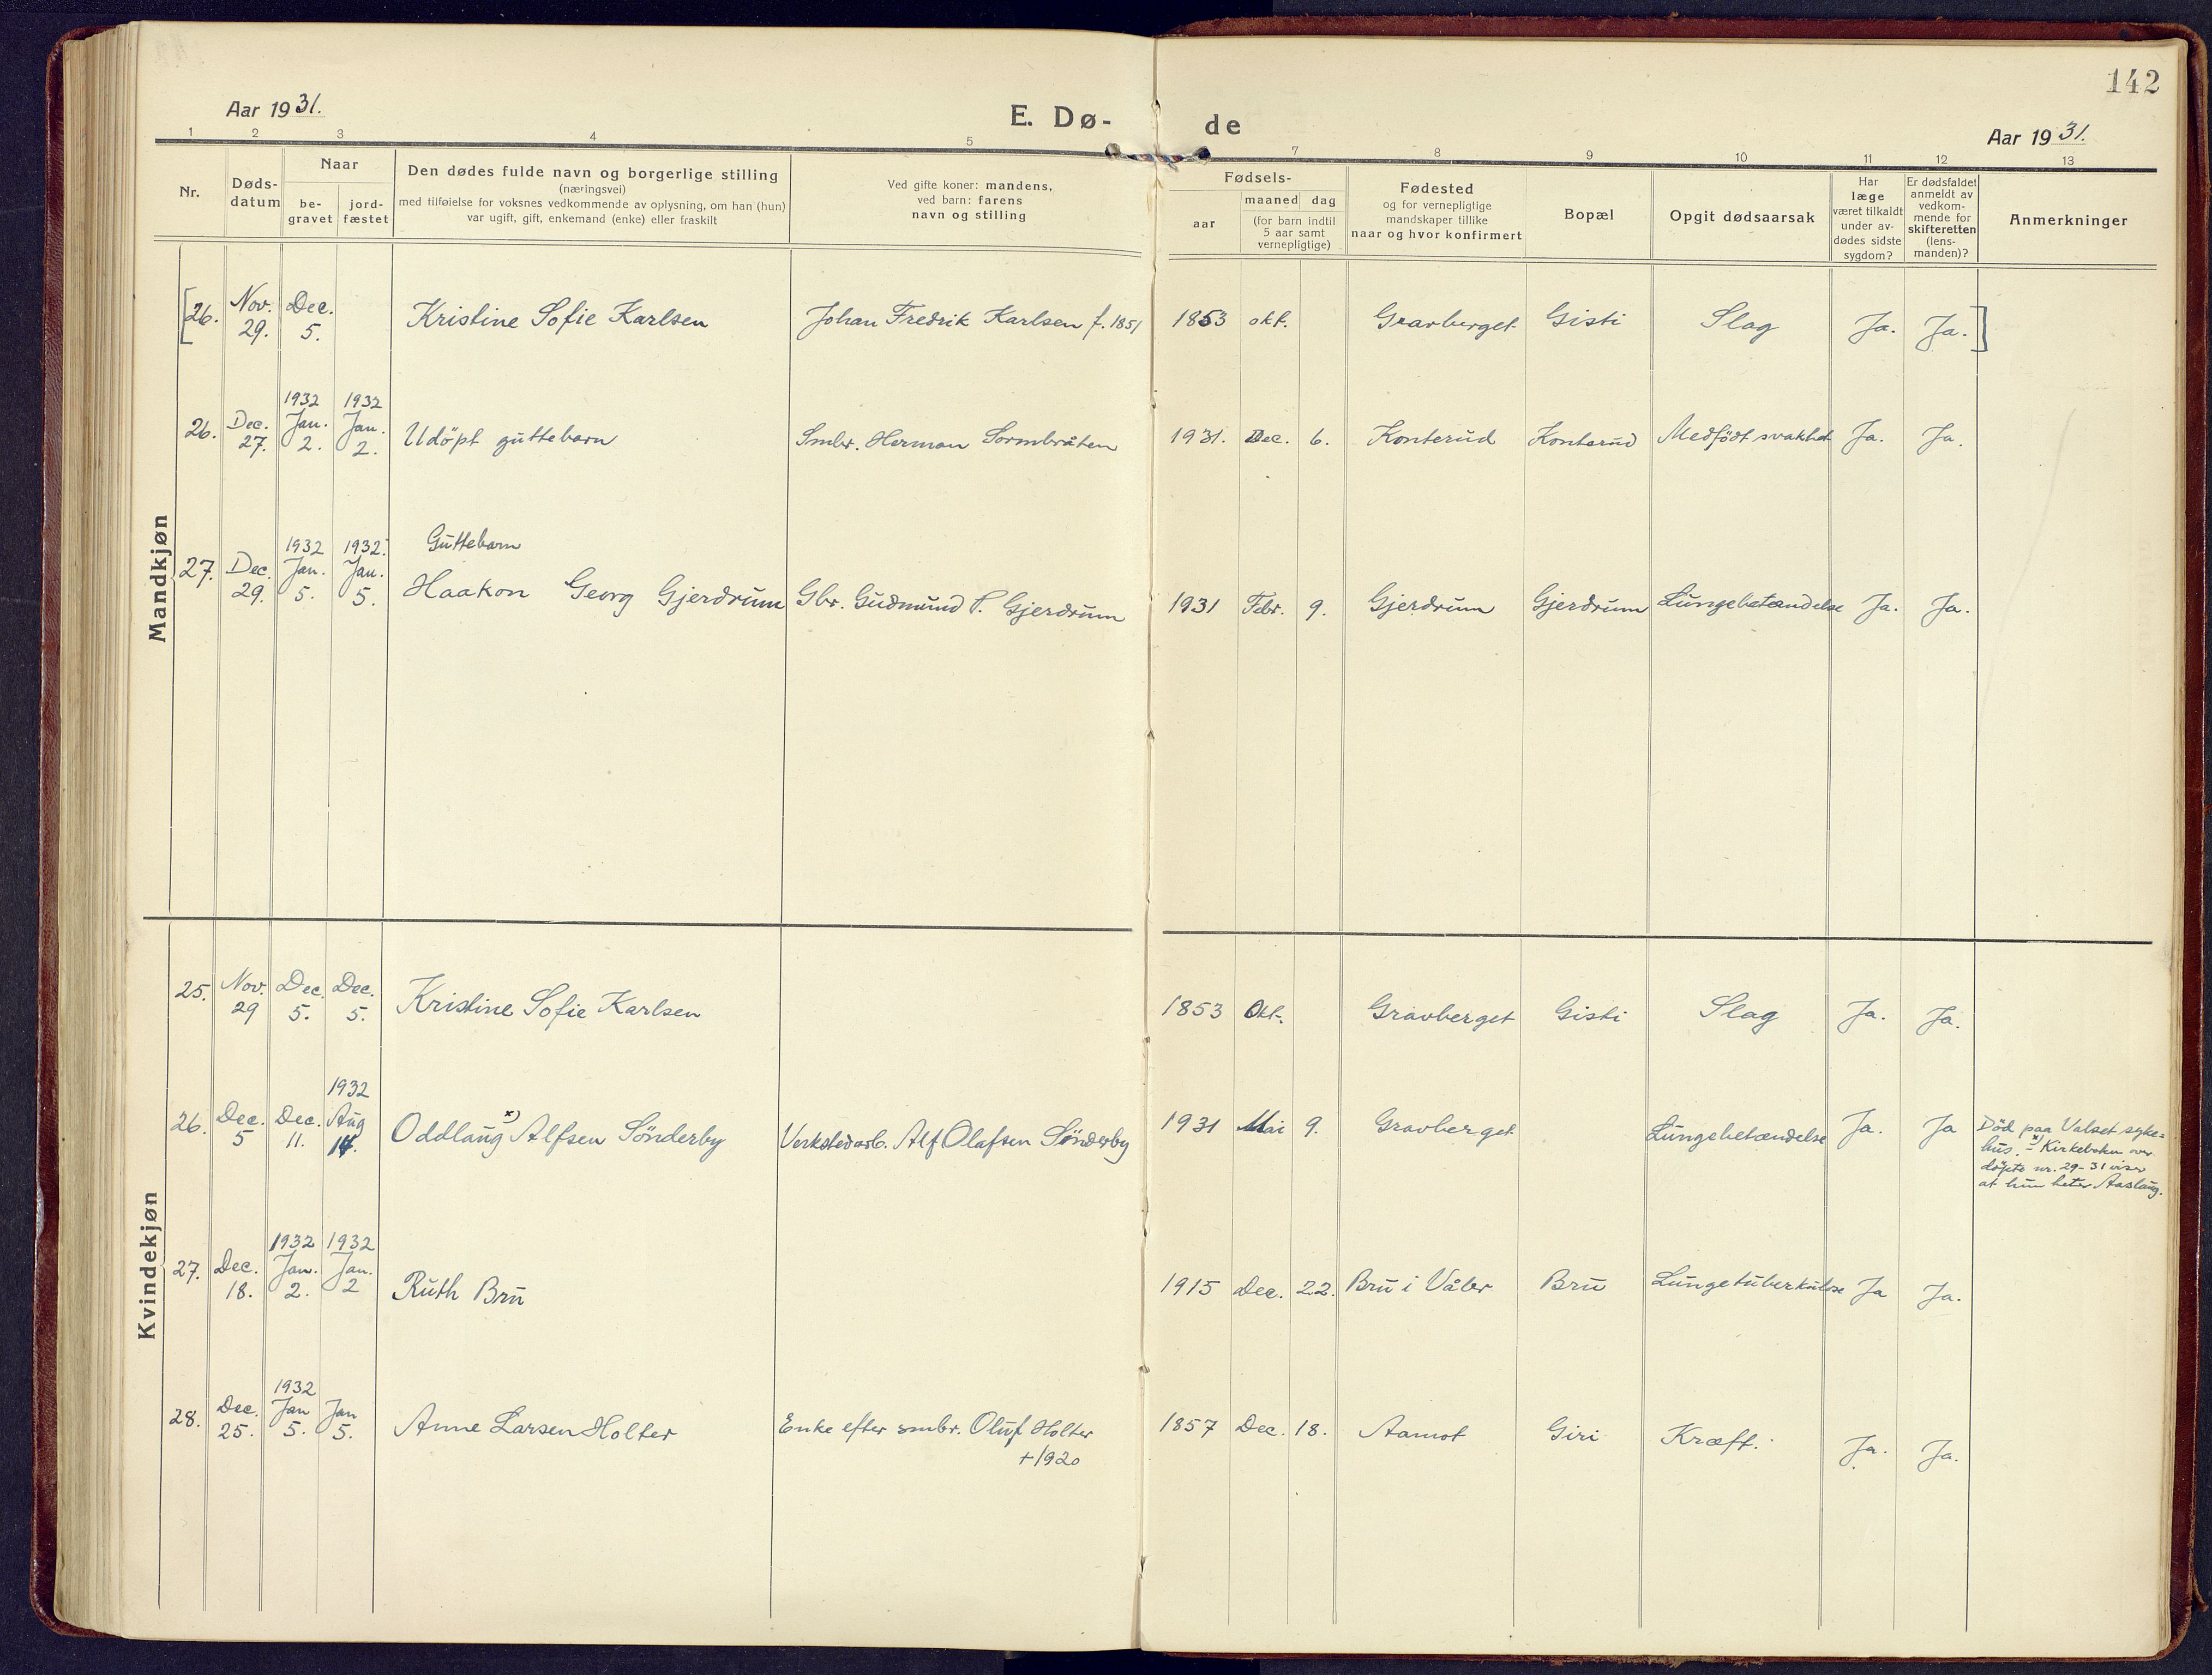 142
Aar 1931.
E. Dø-
de
Aar 1931.
1 2 3 4 5 7 8 9 10 11 12 13
Nr.
Døds-
datum
Naar
be-
gravet
jord-
fæstet
Den dødes fulde navn og borgerlige stilling
(næringsvei)
med tilføielse for voksnes vedkommende av oplysning, om han (hun)
var ugift, gift, enkemand (enke) eller fraskilt
Ved gifte koner: mandens,
ved barn: farens
navn og stilling
Fødsels-
aar
maaned dag
(for barn indtil
5 aar samt
vernepligtige)
Fødested
og for vernepligtige
mandskaper tillike
naar og hvor konfirmert
Bopæl
Opgit dødsaarsak
Har
læge
været tilkaldt
under av-
dødes sidste
sygdom?
Er dødsfaldet
anmeldt av
vedkom-
mende for
skifteretten
(lens-
manden)?
Anmerkninger
Mandkjøn
[26. Nov. 29. Dec. 5. Kristine Sofie Karlsen Johan Fredrik Karlsen f. 1851 1853 okt. Gravberget Gisti Slag Ja. Ja.]
26. Dec. 27. 1932 Jan. 2. 1932 Jan. 2. Udöpt guttebarn Smbr. Herman Sormbråten 1931. Dec. 6. Konterud Konterud Medfödt svakhet Ja. Ja.
Guttebarn
27. Dec. 29. 1932 Jan. 5. 1932. Jan. 5. Haakon Georg Gjerdrum Gbr. Gudmund P. Gjerdrum 1931 Febr. 9. Gjerdrum Gjerdrum Lungebetændelse Ja. Ja.
Kvindekjøn
25. Nov. 29 Dec. 5. Dec. 5. Kristine Sofie Karlsen 1853 Okt. Gravberget Gisti Slag Ja. Ja.
26. Dec. 5 Dec. 11. 1932 Aug 14. Oddlaug x) Alfsen Sönderby Verkstedarb. Alf Olafsen Sönderby 1931 Mai 9. Gravberget Lungebetændelse Ja. Ja
Död paa Valset syke=
hus. – x) Kirkeboken over
döpte nr. 29-31 viser
at hun heter Aaslaug.
27. Dec. 18. 1932 Jan. 2. 1932 Jan. 2 Ruth Bru 1915 Dec. 22. Bru i Våler Bru Lungetuberkulose Ja Ja.
28. Dec. 25. 1932 Jan 5. Jan 5. Anne Larsen Holter Enke efter smbr. Oluf Holter
+1920
1857 Dec. 18. Aamot Giri Kræft. Ja. Ja.